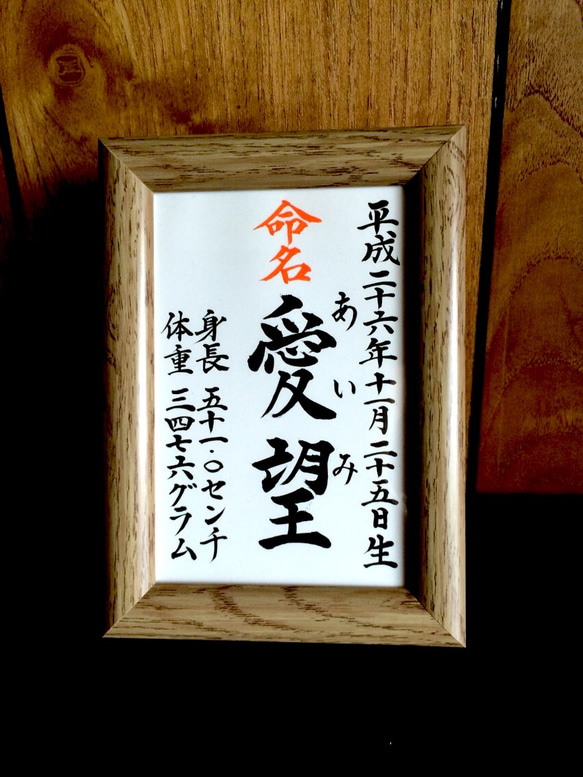 平成二十六年十一月二十五日生
あいみ
命名 愛望
身長 五十一.〇センチ
体重 三四七六グラム